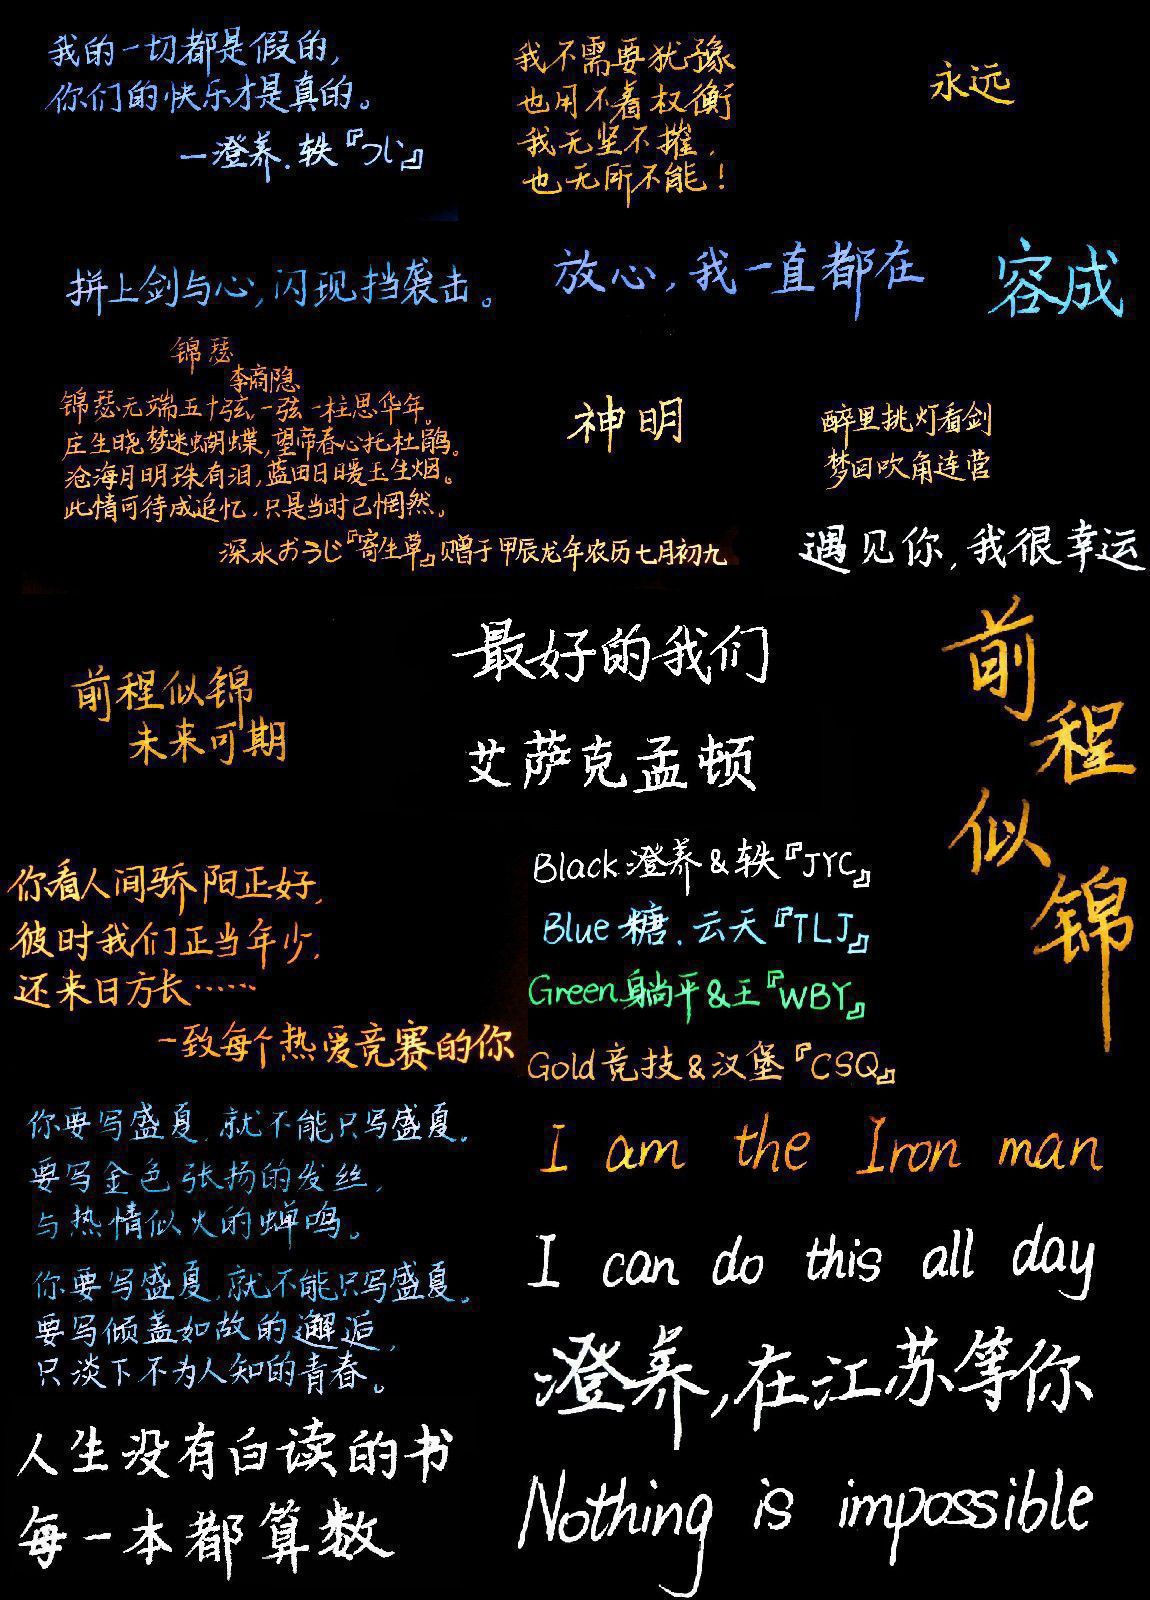 我的一切都是假的，
你们的快乐才是真的。
一澄养.轶『つじ』
我不需要犹豫
也用不着权衡
我无坚不摧，
也无所不能！
永远
拼上剑与心，闪现挡袭击。
放心，我一直都在
容成
锦瑟
李商隐
锦瑟无端五十弦，一弦一柱思华年。
庄生晓梦迷蝴蝶，望帝春心托杜鹃。
沧海月明珠有泪，蓝田日暖玉生烟。
此情可待成追忆，只是当时已惘然。
深水おうじ『寄生草』赠于甲辰龙年农历七月初九
神明
醉里挑灯看剑
梦回吹角连营
遇见你，我很幸运
前程似锦
未来可期
最好的我们
艾萨克孟顿
前
程
似
锦
你看人间骄阳正好，
彼时我们正当年少，
还来日方长……
一致每个热爱竞赛的你
Black 澄养&轶『JYC』
Blue 糖.云天『TLJ』
Green躺平&王『WBY』
Gold 竞技&汉堡『CSQ』
你要写盛夏，就不能只写盛夏。
要写金色张扬的发丝，
与热情似火的蝉鸣。
你要写盛夏，就不能只写盛夏。
要写倾盖如故的邂逅，
只淡下不为人知的青春。
I am the Iron man
I can do this all day
澄养，在江苏等你
Nothing is impossible
人生没有白读的书
每一本都算数